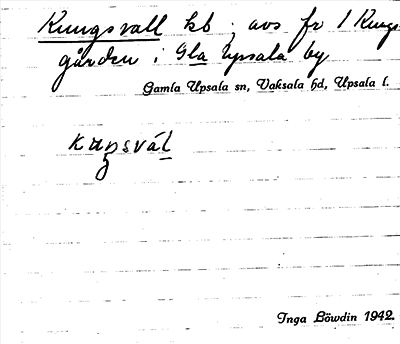 Kungsvall hb; avs fr 1 Kungs
gården i Gla Upsala by
Gamla Upsala sn, Vaksala hd, Upsala l.
kuŋsvál
Inga Löwdin 1942.